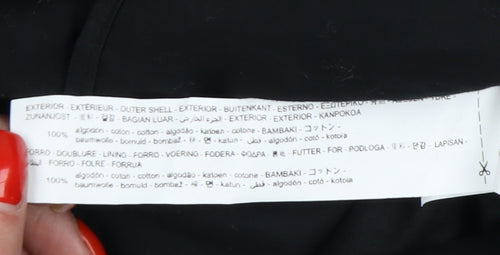 EXTERIOR - EXTÉRIEUR - OUTER SHELL - EXTERIOR - BUITENKANT - ESTERNO - ΕΞΩΤΕΡΙΚΟ -
ZUNANJOST - 겉감 - BAGIAN LUAR - الجزء الخارجي - EXTERIOR - EXTERIOR - KANPOKOA
100% algodón - coton - cotton - algodão - katoen - cotone - ΒΑΜΒΑΚΙ - コットン -
baumwolle - bomuld - bombaž - 棉 - 면 - katun - قطن - algodón - cotó - kotoia
FORRO - DOUBLURE - LINING - FORRO - VOERING - FODERA - ΦΟΔΡΑ - FUTTER - FOR - PODLOGA - 안감 - LAPISAN -
البطانة - FORRO - FOLRE - FORRUA
100% algodón - coton - cotton - algodão - katoen - cotone - ΒΑΜΒΑΚΙ - コットン -
baumwolle - bomuld - bombaž - 棉 - 면 - katun - قطن - algodón - cotó - kotoia